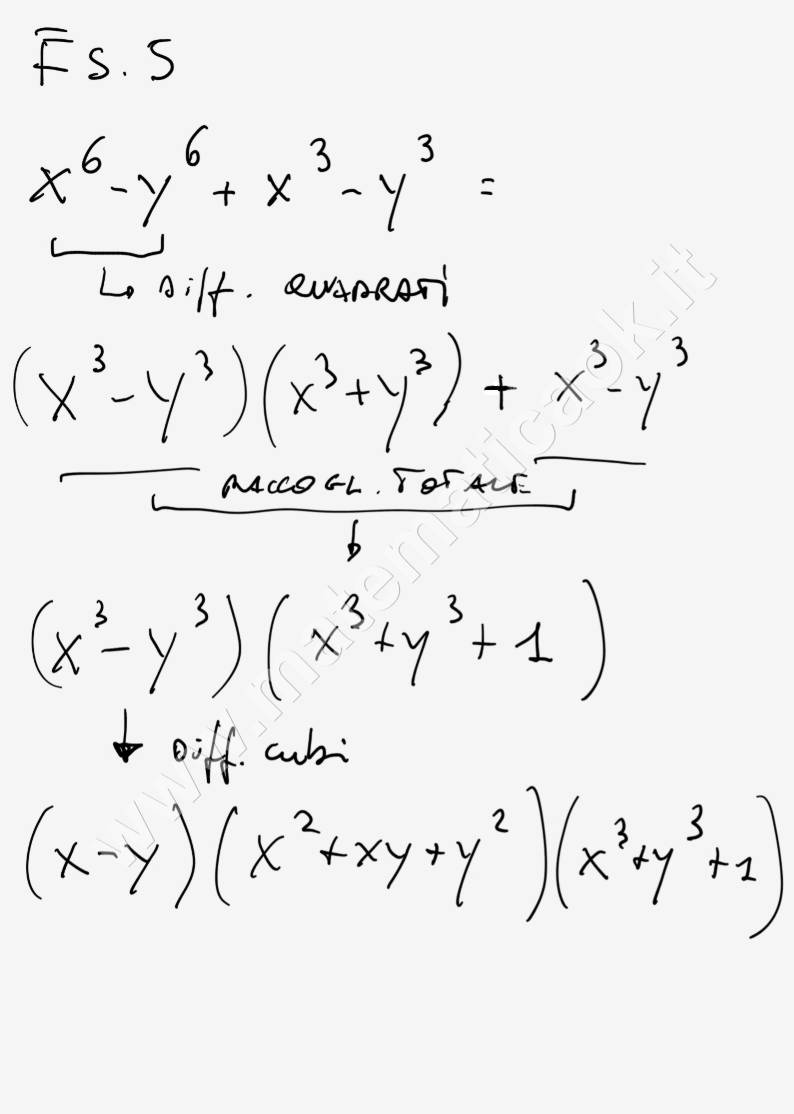 Es. 5
x⁶ - y⁶ + x³ - y³ =
↳ Diff. QUADRATI
(x³ - y³)(x³ + y³) + x³ - y³
RACCOGL. TOTALE
(x³ - y³)(x³ + y³ + 1)
↓ Diff. cubi
(x - y)(x² + xy + y²)(x³ + y³ + 1)
www.matematicaok.it